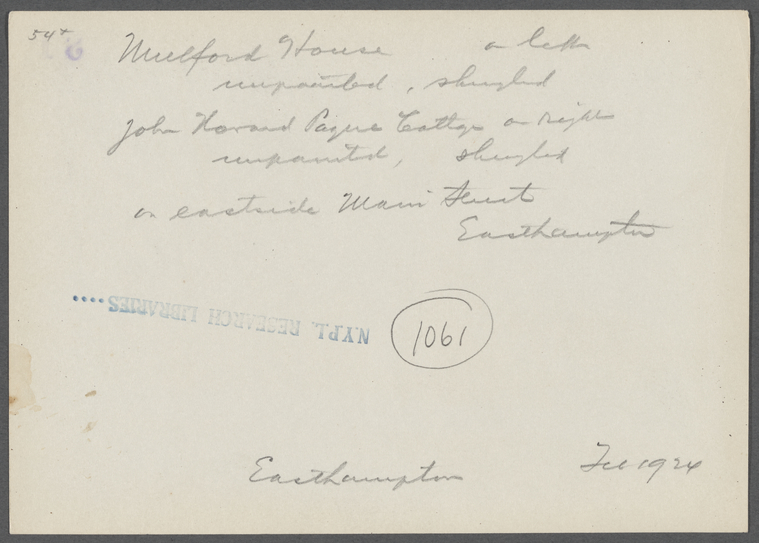 54+
Mulford House on left
unpainted, shingled
John Howard Payne Cottage on right
unpainted, shingled
on eastside Main Street
Easthampton
N.Y.P.L. RESEARCH LIBRARIES....
1061
Easthampton
1924